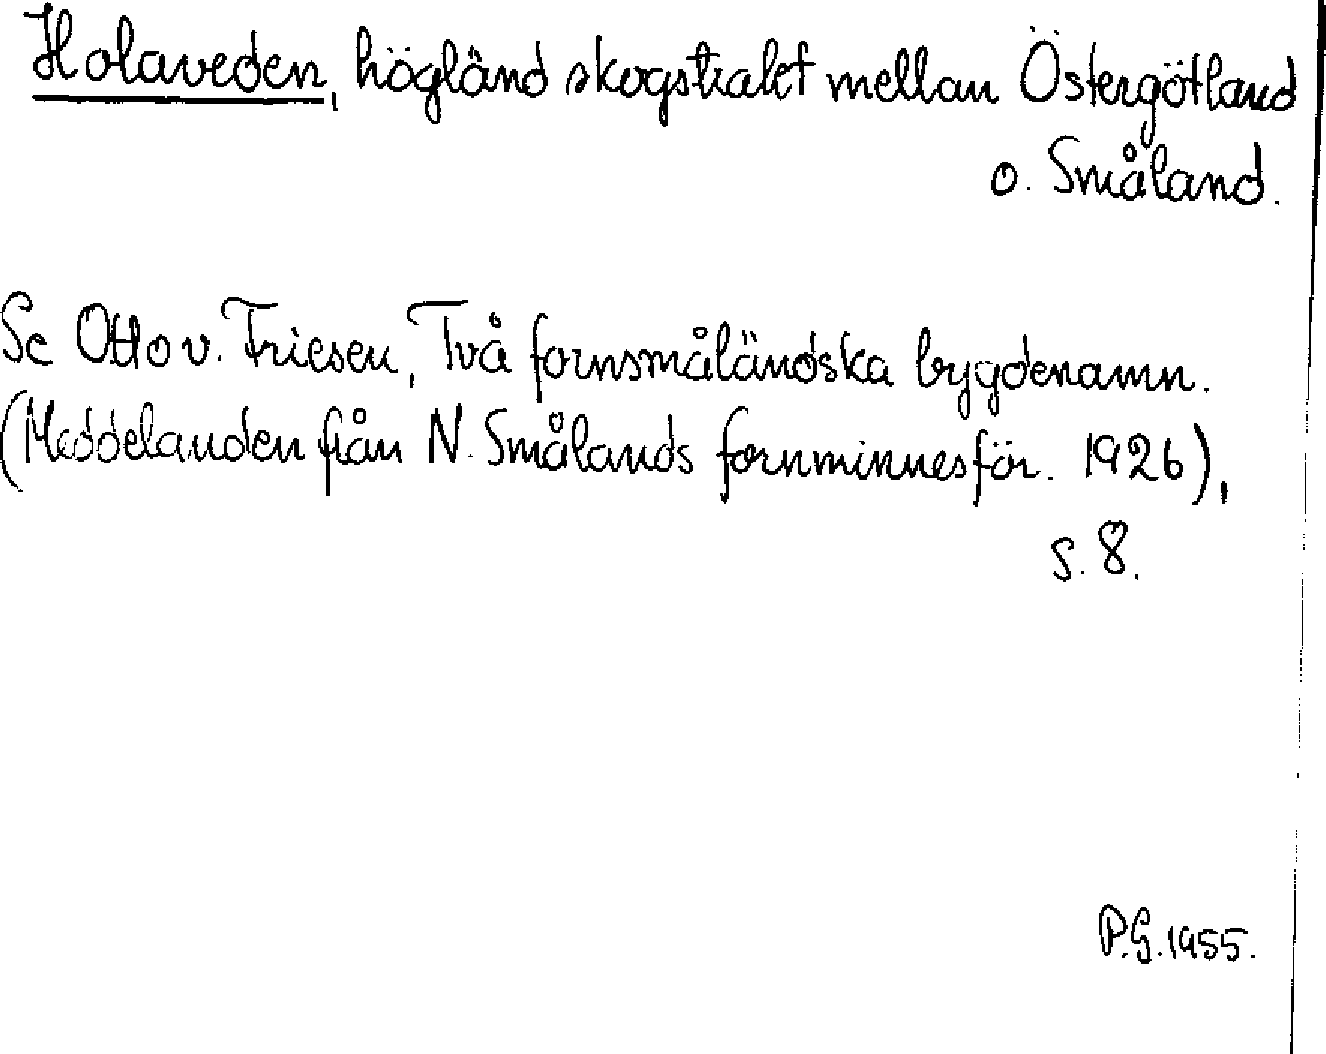 Holaveden, högländ skogstrakt mellan Östergötland
o. Småland.
Se Otto v. Friesen, Två fornsmåländska bygdenamn.
(Meddelanden från N. Smålands fornminnesför. 1926),
s. 8.
P.G. 1955.